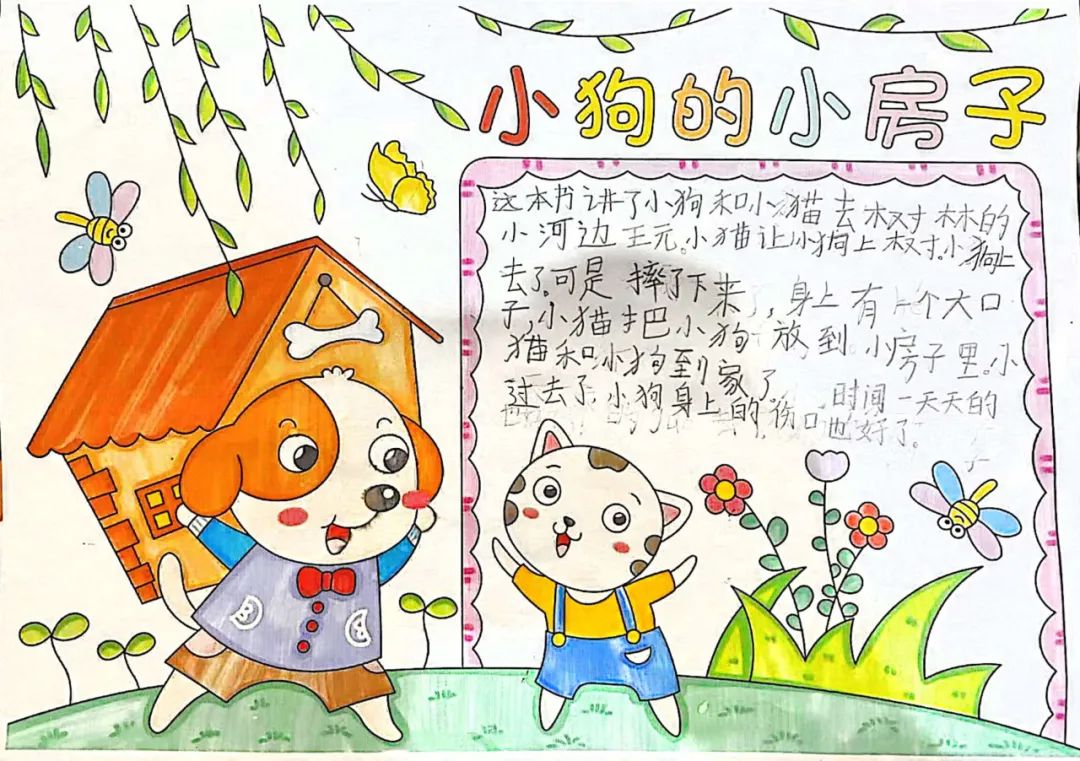 小狗的小房子
这本书讲了小狗和小猫去树林的
小河边玩。小猫让小狗上树。小狗上
去了。可是摔了下来,身上有个大口
子,小猫把小狗放到小房子里。小
猫和小狗到家了。时间一天天的
过去了。小狗身上的伤口也好了。